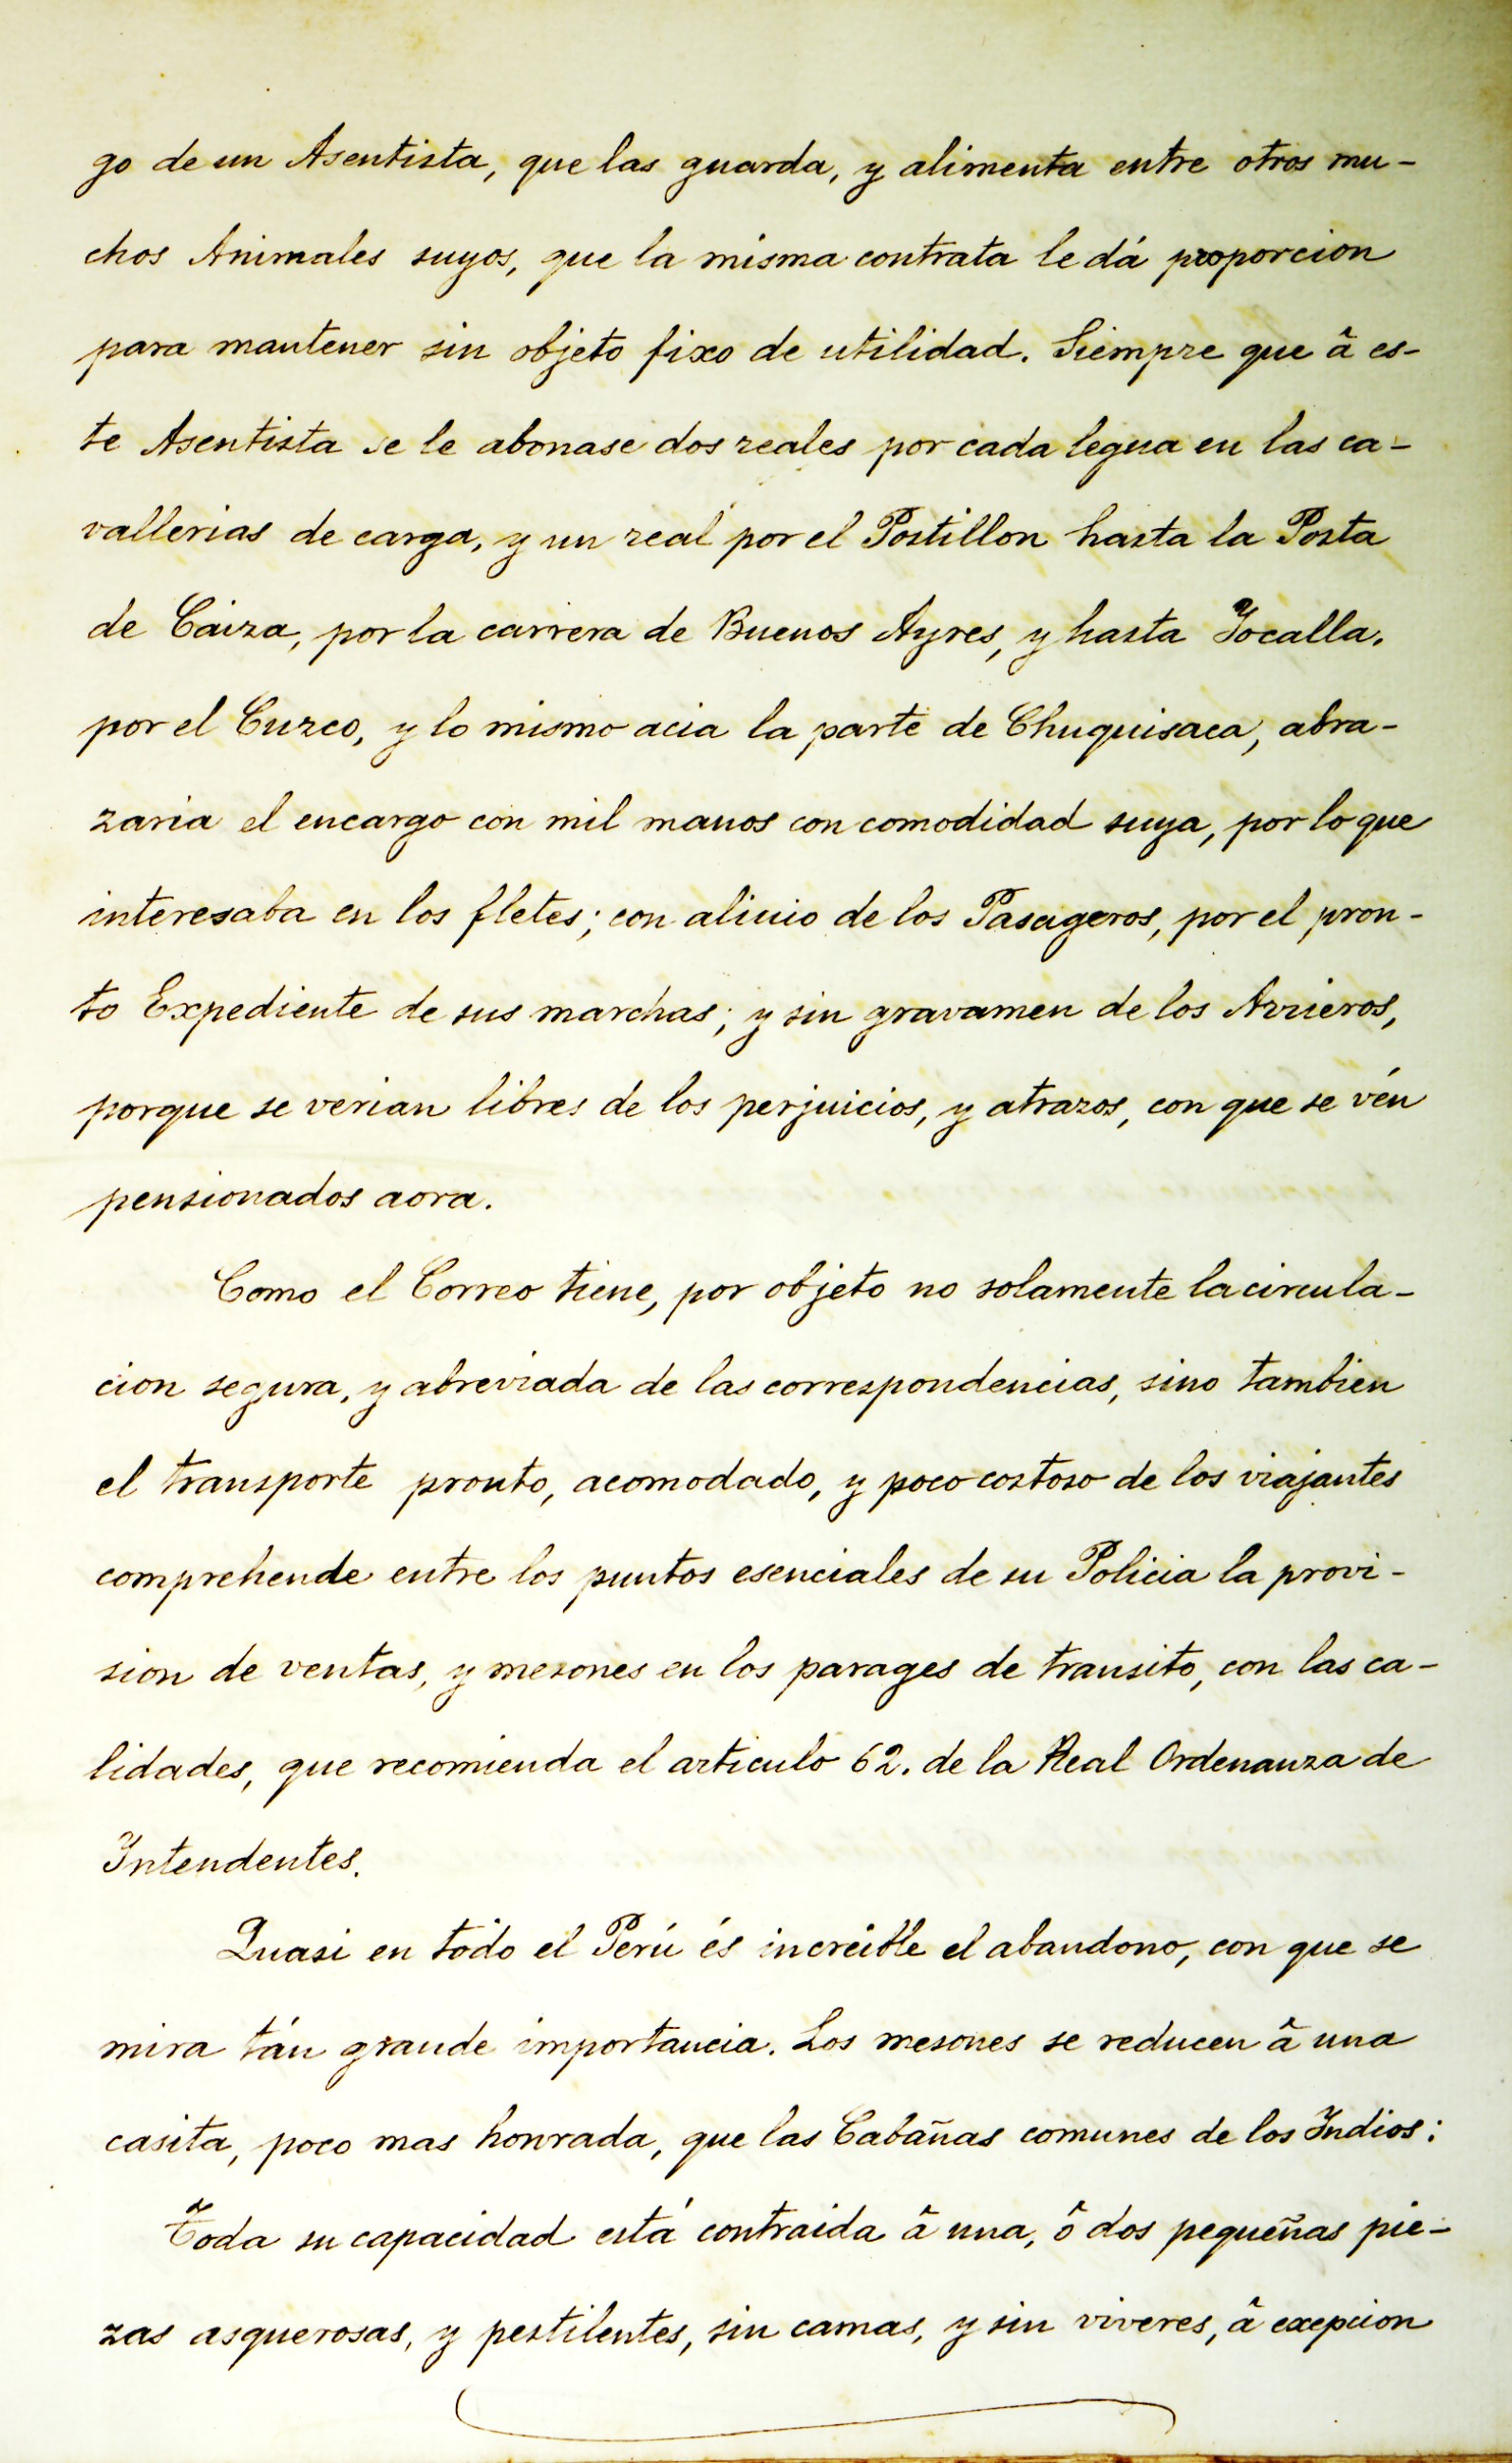 go de un Asentista, que las guarda, y alimenta entre otros mu-
chos Animales suyos, que la misma contrata le dá proporcion
para mantener sin objeto fixo de utilidad. Siempre que â es-
te Asentista se le abonase dos reales por cada legua en las ca-
vallerias de carga, y un real por el Postillon hasta la Posta
de Caiza, por la carrera de Buenos Ayres, y hasta Yocalla.
por el Cuzco, y lo mismo acia la parte de Chuquisaca, abra-
zaria el encargo con mil manos con comodidad suya, por lo que
interesaba en los fletes; con alivio de los Pasageros, por el pron-
to Expediente de sus marchas; y sin gravamen de los Arrieros,
porque se verian libres de los perjuicios, y atrazos, con que se vén
pensionados aora.
Como el Correo tiene, por objeto no solamente la circula-
cion segura, y abreviada de las correspondencias, sino tambien
el transporte pronto, acomodado, y poco costoso de los viajantes
comprehende entre los puntos esenciales de su Policia la provi-
sion de ventas, y mesones en los parages de transito, con las ca-
lidades, que recomienda el articulo 62. de la Real Ordenanza de
Intendentes.
Quasi en todo el Perú és increible el abandono, con que se
mira tán grande importancia. Los mesones se reducen â una
casita, poco mas honrada, que las Cabañas comunes de los Indios:
Toda su capacidad está contraida â una, ô dos pequeñas pie-
zas asquerosas, y pestilentes, sin camas, y sin viveres, â exepcion